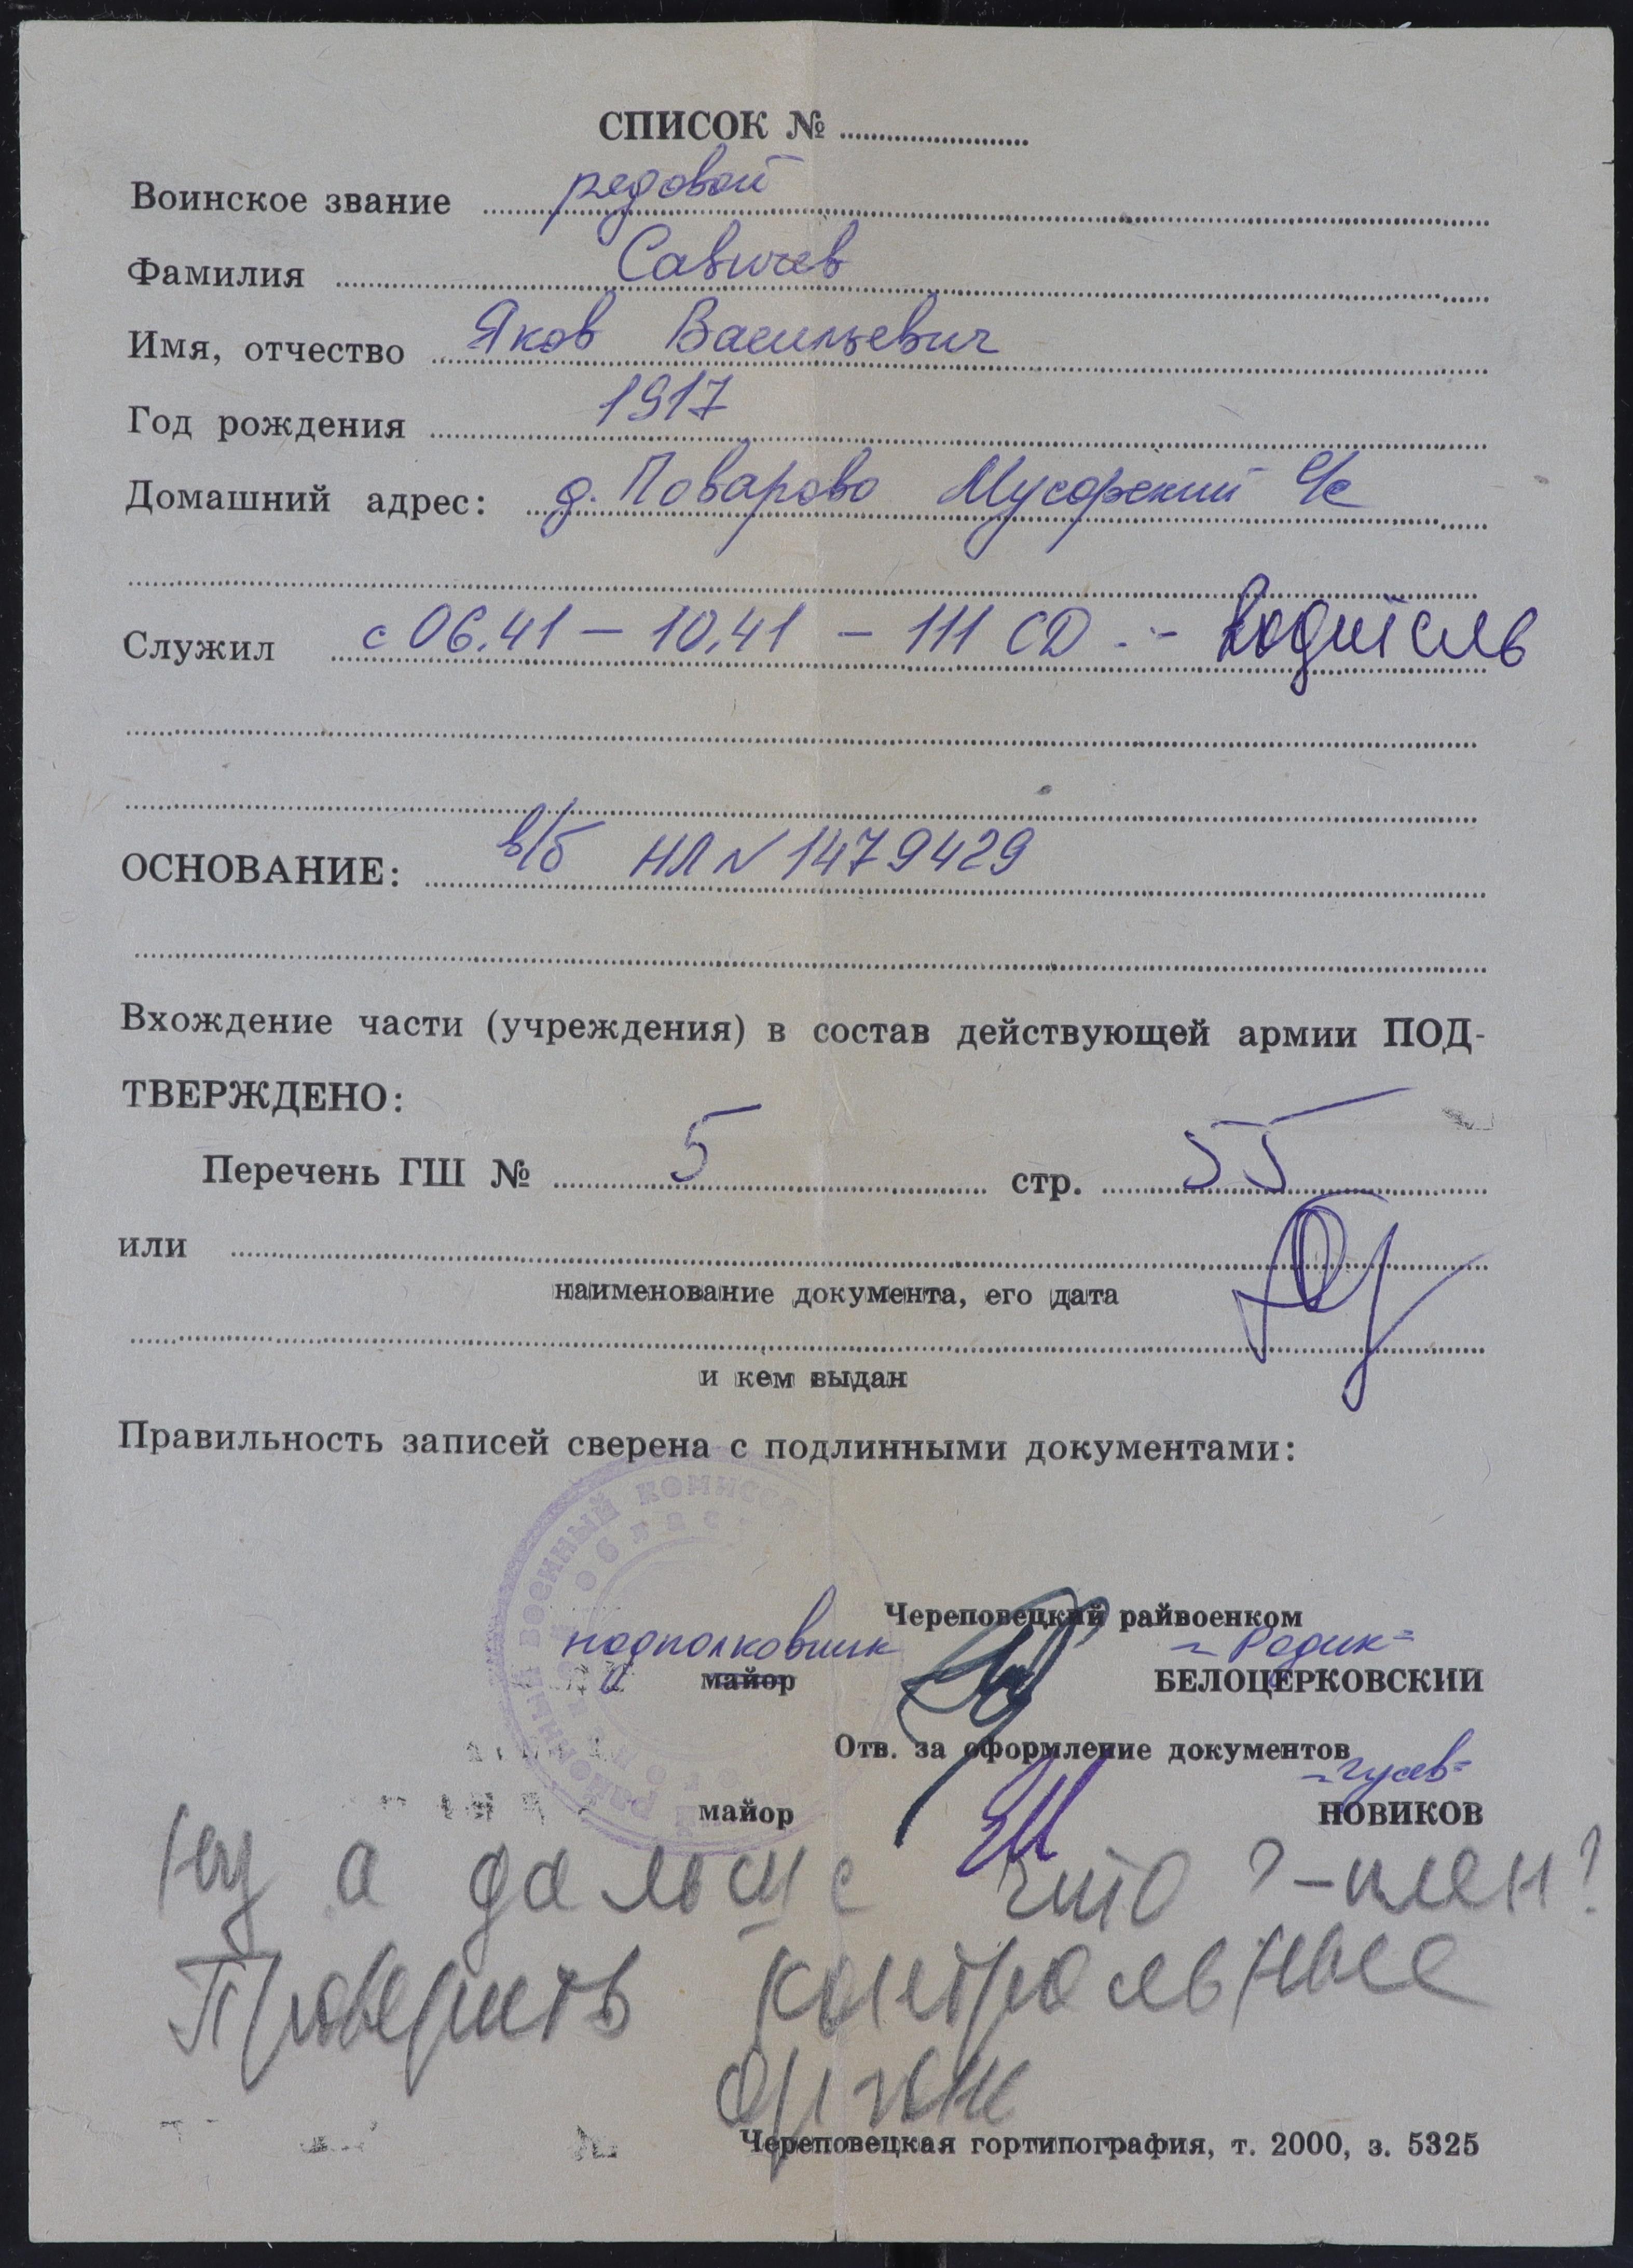 СПИСОК №
Воинское звание рядовой
Фамилия Савичев
Имя, отчество Яков Васильевич
Год рождения 1917
Домашний адрес: д. Поварово Мусорский с/с
Служил с 06.41 – 10.41 – 111 СД – Водитель
ОСНОВАНИЕ: в/б НЛ № 1479429
Вхождение части (учреждения) в состав действующей армии ПОД-
ТВЕРЖДЕНО:
Перечень ГШ № 5 стр. 55
или
наименование документа, его дата
и кем выдан
Правильность записей сверена с подлинными документами:
районный военный комисса
Череповецкий райвоенком
подполковник – Родик –
майор БЕЛОЦЕРКОВСКИЙ
Отв. за оформление документов
– Гусев –
майор НОВИКОВ
Ну а дальше что? – плен?
Проверить контрольные
органы
Череповецкая гортипография, т. 2000, з. 5325